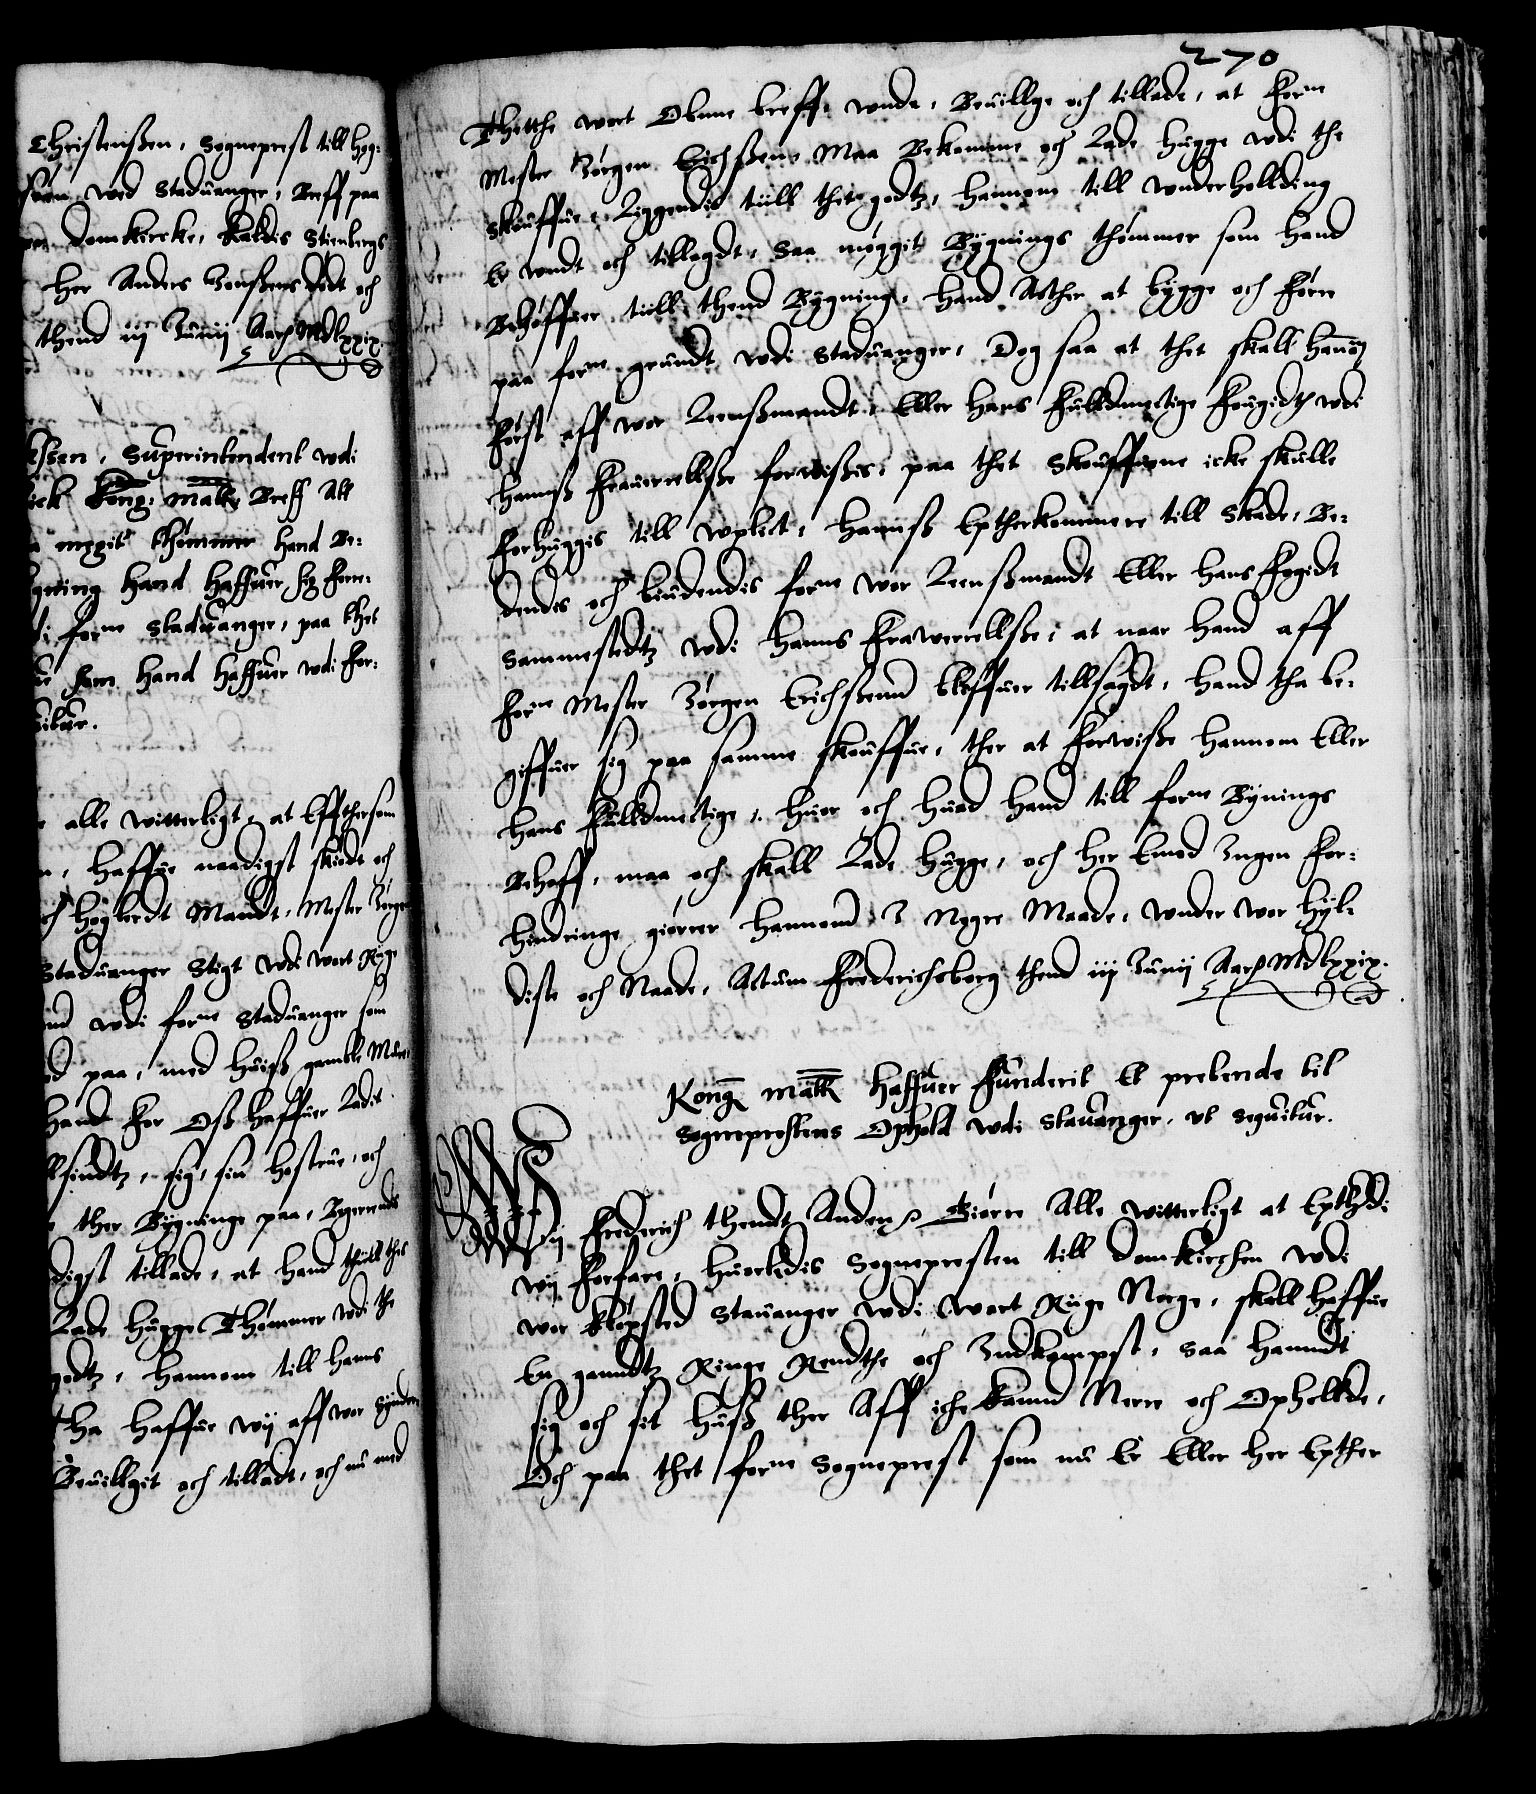 Christenßen, Sogneprest till Høg-
ved Staduanger, Breff paa
Domkircke, Kaldis Stienbergs
Her Anders Jenßens dødt och
thend iij Junij Aar ꝛc Mdlxxix.
Superintendent vdi
fick Kong: Matts Breff Att
megit thømmer hand Be-
bygning hand Haffuer sig fore-
di forne Staduanger, paa thet
som hand Haffuer vdi for-
sequitur.
alle witterligt, at Effthersom
Haffue naadigst skiødt och
høglerdt Mandt, Mester Jørgen
Staduanger Stigt vdi vort Rige
vdi forne Staduanger som
paa, med huiß gamble Mure
hand for Oß Haffuer Ladit
sig, sin hostrue, och
ther Bygninge paa, Begerendis
digst tillade, at hand thiill thes
Lade hugge Thømmer vdi the
godtz, hannom till hans
Tha Haffue wij aff vor synder-
Beuillgit och tilladt, och nu med
270
Thette vort Obne breff, vnde, Beuillge och tillade, at forne
Mester Jørgen Erichßenn, Maa Bekomme och Lade hugge vdi the
Skouffue, Liggendis tiill thet godtz, hannom till vnderholding
Er vndt och tillagdt, saa møggit Bygnings thømmer som hand
Behøffuer tiill thend Bygning, hand Acther at bygge och føre
paa forne grundt vdi Staduanger, Dog saa at thet skall hannom
først aff vor Leenßmandt, Eller hans fuldmectige fougidt vdi
hanß frauerellße foruißes, paa thet Skouffuene icke skulle
forhuggis till vplict, hanß Eptherkommere till skade, Be-
dendes och biudendis forne vor Leenßmandt Eller hans fogidt
sammestedtz vdi hanns frawerellße, at naar hand aff
forne Mester Jørgen Erichßenn bliffuer tillsagdt, hand tha be-
giffuer sig paa samme skouffue, ther at forwiße hannom Eller
hans fuldmectige, huor och huad hand till forne Bynings
Behoff, maa och skall Lade hugge, och her Emod Ingen for-
hindringe giører hannom I Nogre Maade, vnder vor hyl-
diste och Naade, Actum Frederichsborg thend iij Junij Aar ꝛc Mdlxxix.
Kong Matt Haffuer funderit Et prebende til
Sogneprestens Ophold vdi Stauanger, vt sequitur.
Wij Frederich thendt Anden ꝛc Giøre Alle witterligt at Epthrdi
wij forfare, huorledis Sognepresten till Domkirchen vdi
vor kiøpsted Stauanger vdi vort Rige Norge, skall haffue
En gandtz Ringe Rendthe och Indkompst, saa hanndt
sig och sit huß ther Aff iche kannd Nere och Opholde,
Och paa thet forne Sogneprest som nu Er Eller her Epther